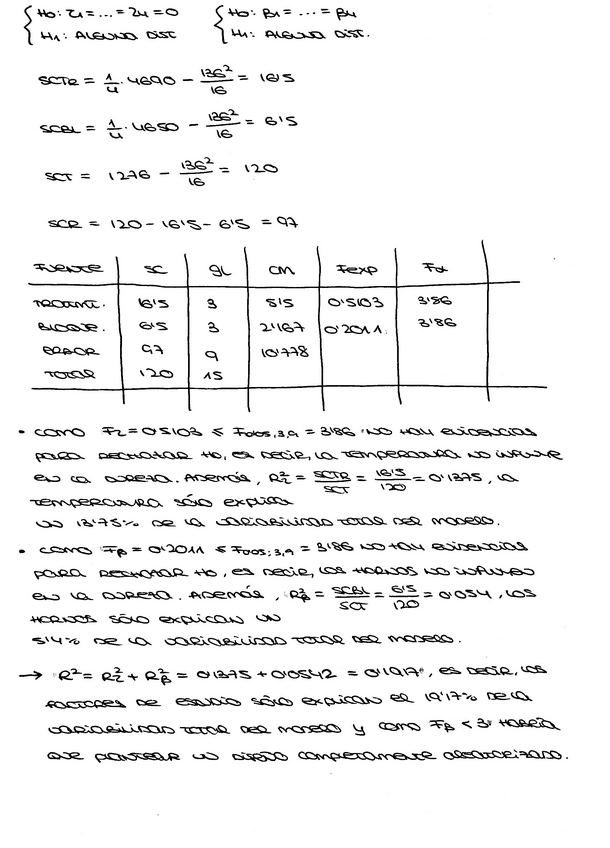 H0: τ1 = ... = τ4 = 0   H0: β1 = ... = β4
H1: ALGUNO DIST   H1: ALGUNO DIST.
SCTR = 1/4 · 4690 − 136²/16 = 16'5
SCBL = 1/4 · 4650 − 136²/16 = 6'5
SCT = 1276 − 136²/16 = 120
SCR = 120 − 16'5 − 6'5 = 97
FUENTE | SC | gL | CM | Fexp | Fα
TRATAMI. | 16'5 | 3 | 5'5 | 0'5103 | 3'86
BLOQUE. | 6'5 | 3 | 2'167 | 0'2011 | 3'86
ERROR | 97 | 9 | 10'778
TOTAL | 120 | 15
• COMO Fτ = 0'5103 ≤ F0'05,3,9 = 3'86 NO HAY EVIDENCIAS
PARA RECHAZAR H0, ES DECIR, LA TEMPERATURA NO INFLUYE
EN LA DUREZA. ADEMÁS, R²τ = SCTR/SCT = 16'5/120 = 0'1375, LA
TEMPERATURA SÓLO EXPLICA
UN 13'75% DE LA VARIABILIDAD TOTAL DEL MODELO.
• COMO Fβ = 0'2011 ≤ F0'05;3,9 = 3'86 NO HAY EVIDENCIAS
PARA RECHAZAR H0, ES DECIR, LOS HORNOS NO INFLUYEN
EN LA DUREZA. ADEMÁS, R²β = SCBL/SCT = 6'5/120 = 0'054, LOS
HORNOS SÓLO EXPLICAN UN
5'4% DE LA VARIABILIDAD TOTAL DEL MODELO.
→ R² = R²τ + R²β = 0'1375 + 0'0542 = 0'1917, ES DECIR, LOS
FACTORES DE ESTUDIO SÓLO EXPLICAN EL 19'17% DE LA
VARIABILIDAD TOTAL DEL MODELO Y COMO Fβ < 3 HABRÍA
QUE PLANTEAR UN DISEÑO COMPLETAMENTE ALEATORIZADO.